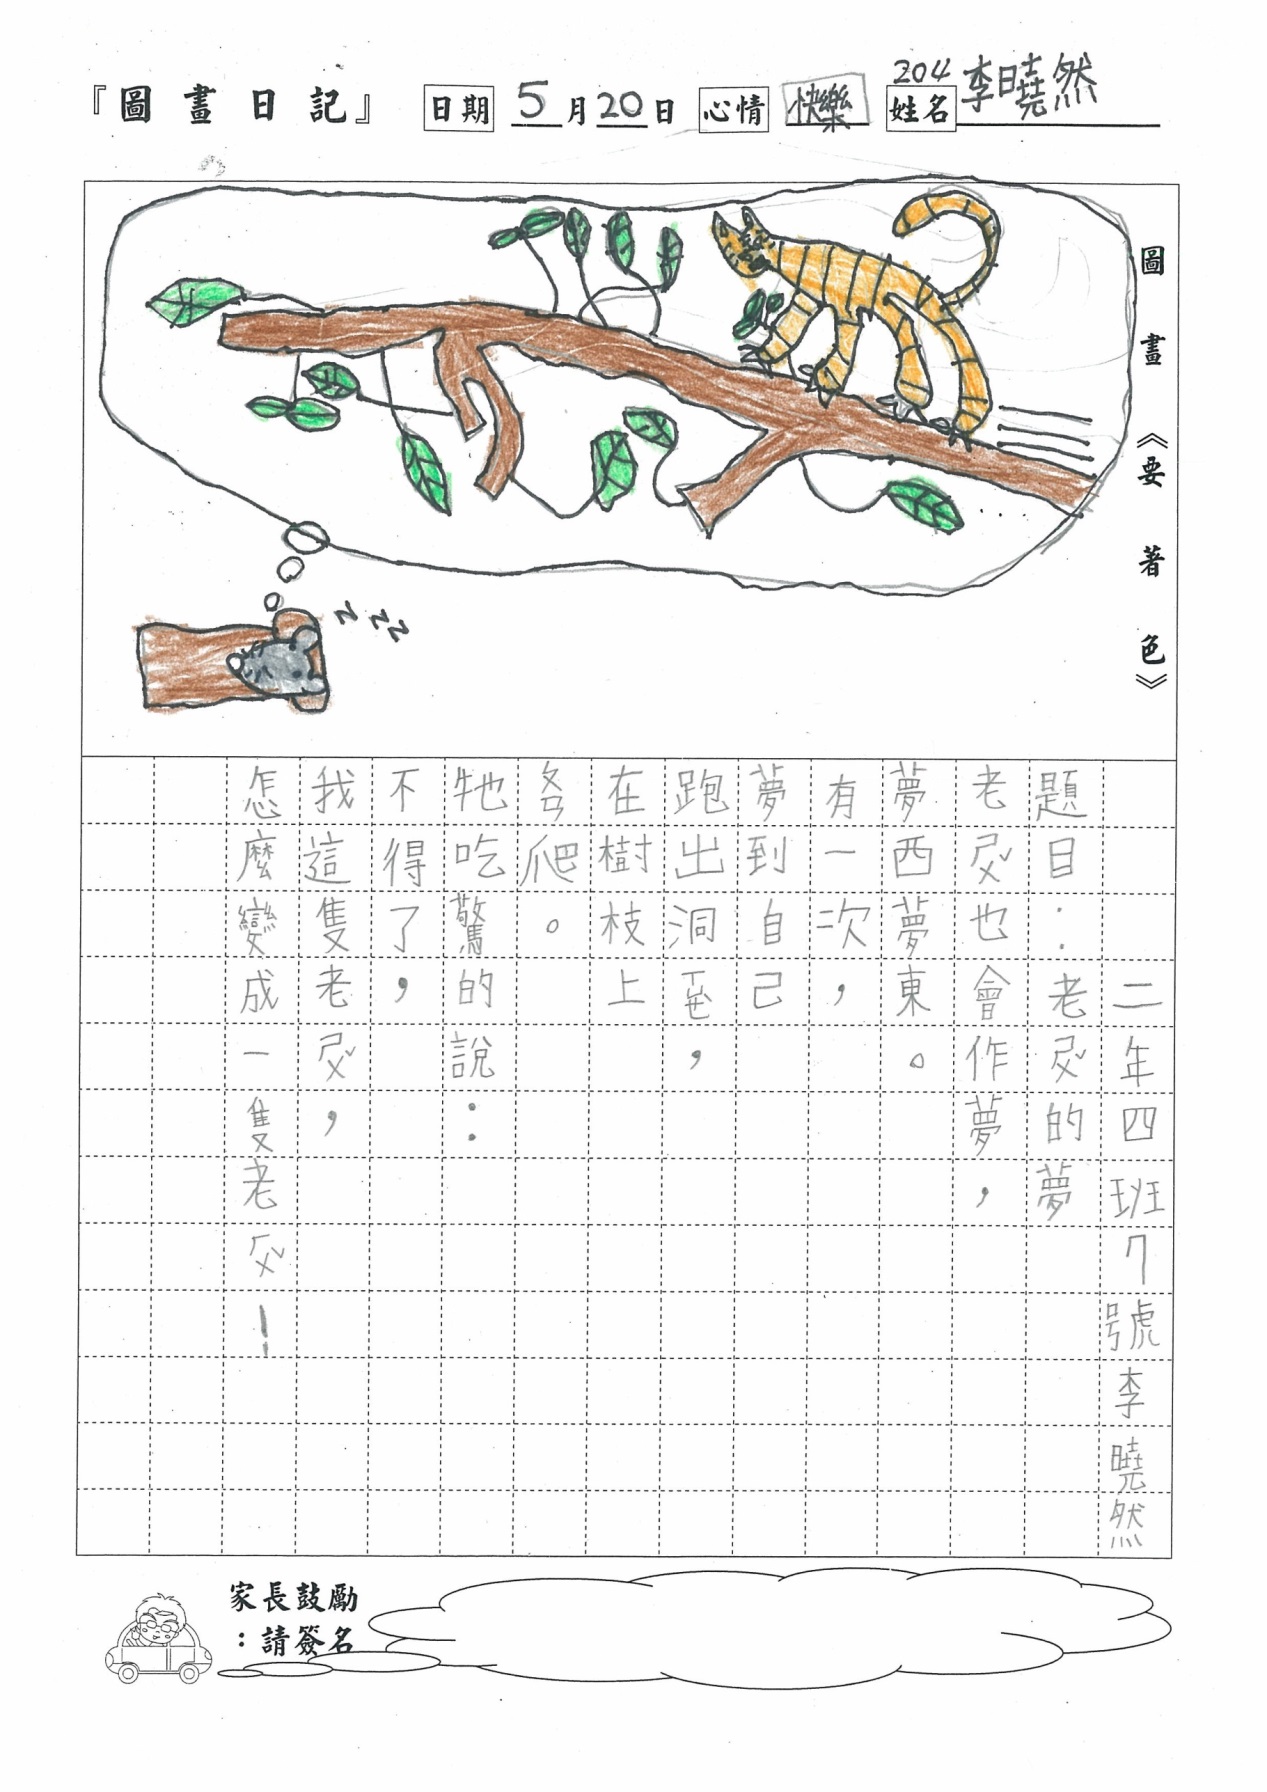 『圖畫日記』 日期 5月20日 心情 快樂 姓名 204 李曉然
圖畫《要著色》
二年四班7號李曉然
題目：老ㄕㄨˇ的夢
老ㄕㄨˇ也會作夢，
夢西夢東。
有一次，
夢到自己
跑出洞，
在樹枝上
ㄆㄢ爬。
牠吃驚的說：
不得了，
我這隻老ㄕㄨˇ，
怎麼變成一隻老ㄏㄨˇ！
家長鼓勵
：請簽名